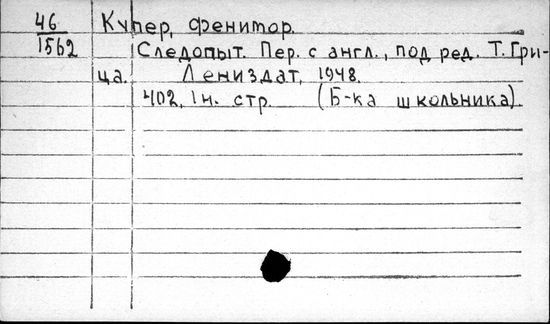 46 Купер, Фенитор.
1562 Следопыт. Пер. с англ., под ред. Т. Гри-
ца. Лениздат, 1948.
402, 1 н. стр. (Б-ка школьника)